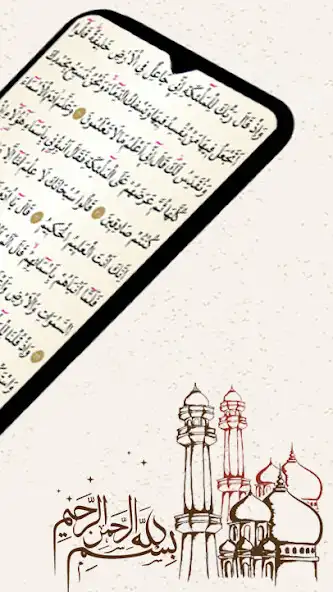 وَإِذْ قَالَ رَبُّكَ لِلْمَلَٰٓئِكَةِ إِنِّى جَاعِلٌ فِى ٱلْأَرْضِ خَلِيفَةً قَالُوٓا۟
أَتَجْعَلُ فِيهَا مَن يُفْسِدُ فِيهَا وَيَسْفِكُ ٱلدِّمَآءَ وَنَحْنُ نُسَبِّحُ بِحَمْدِكَ
وَنُقَدِّسُ لَكَ قَالَ إِنِّىٓ أَعْلَمُ مَا لَا تَعْلَمُونَ وَعَلَّمَ ءَادَمَ ٱلْأَسْمَآءَ
كُلَّهَا ثُمَّ عَرَضَهُمْ عَلَى ٱلْمَلَٰٓئِكَةِ فَقَالَ أَنۢبِـُٔونِى بِأَسْمَآءِ هَٰٓؤُلَآءِ
كُنتُمْ صَٰدِقِينَ قَالُوا۟ سُبْحَٰنَكَ لَا عِلْمَ لَنَآ إِلَّا
إِنَّكَ أَنتَ ٱلْعَلِيمُ ٱلْحَكِيمُ قَالَ
فَلَمَّآ أَنۢبَأَهُم بِأَسْمَآئِهِمْ قَالَ
ٱلسَّمَٰوَٰتِ وَٱلْأَرْضِ
وَإِذْ قُلْنَا
بِسْمِ اللهِ الرَّحْمنِ الرَّحِيْمِ